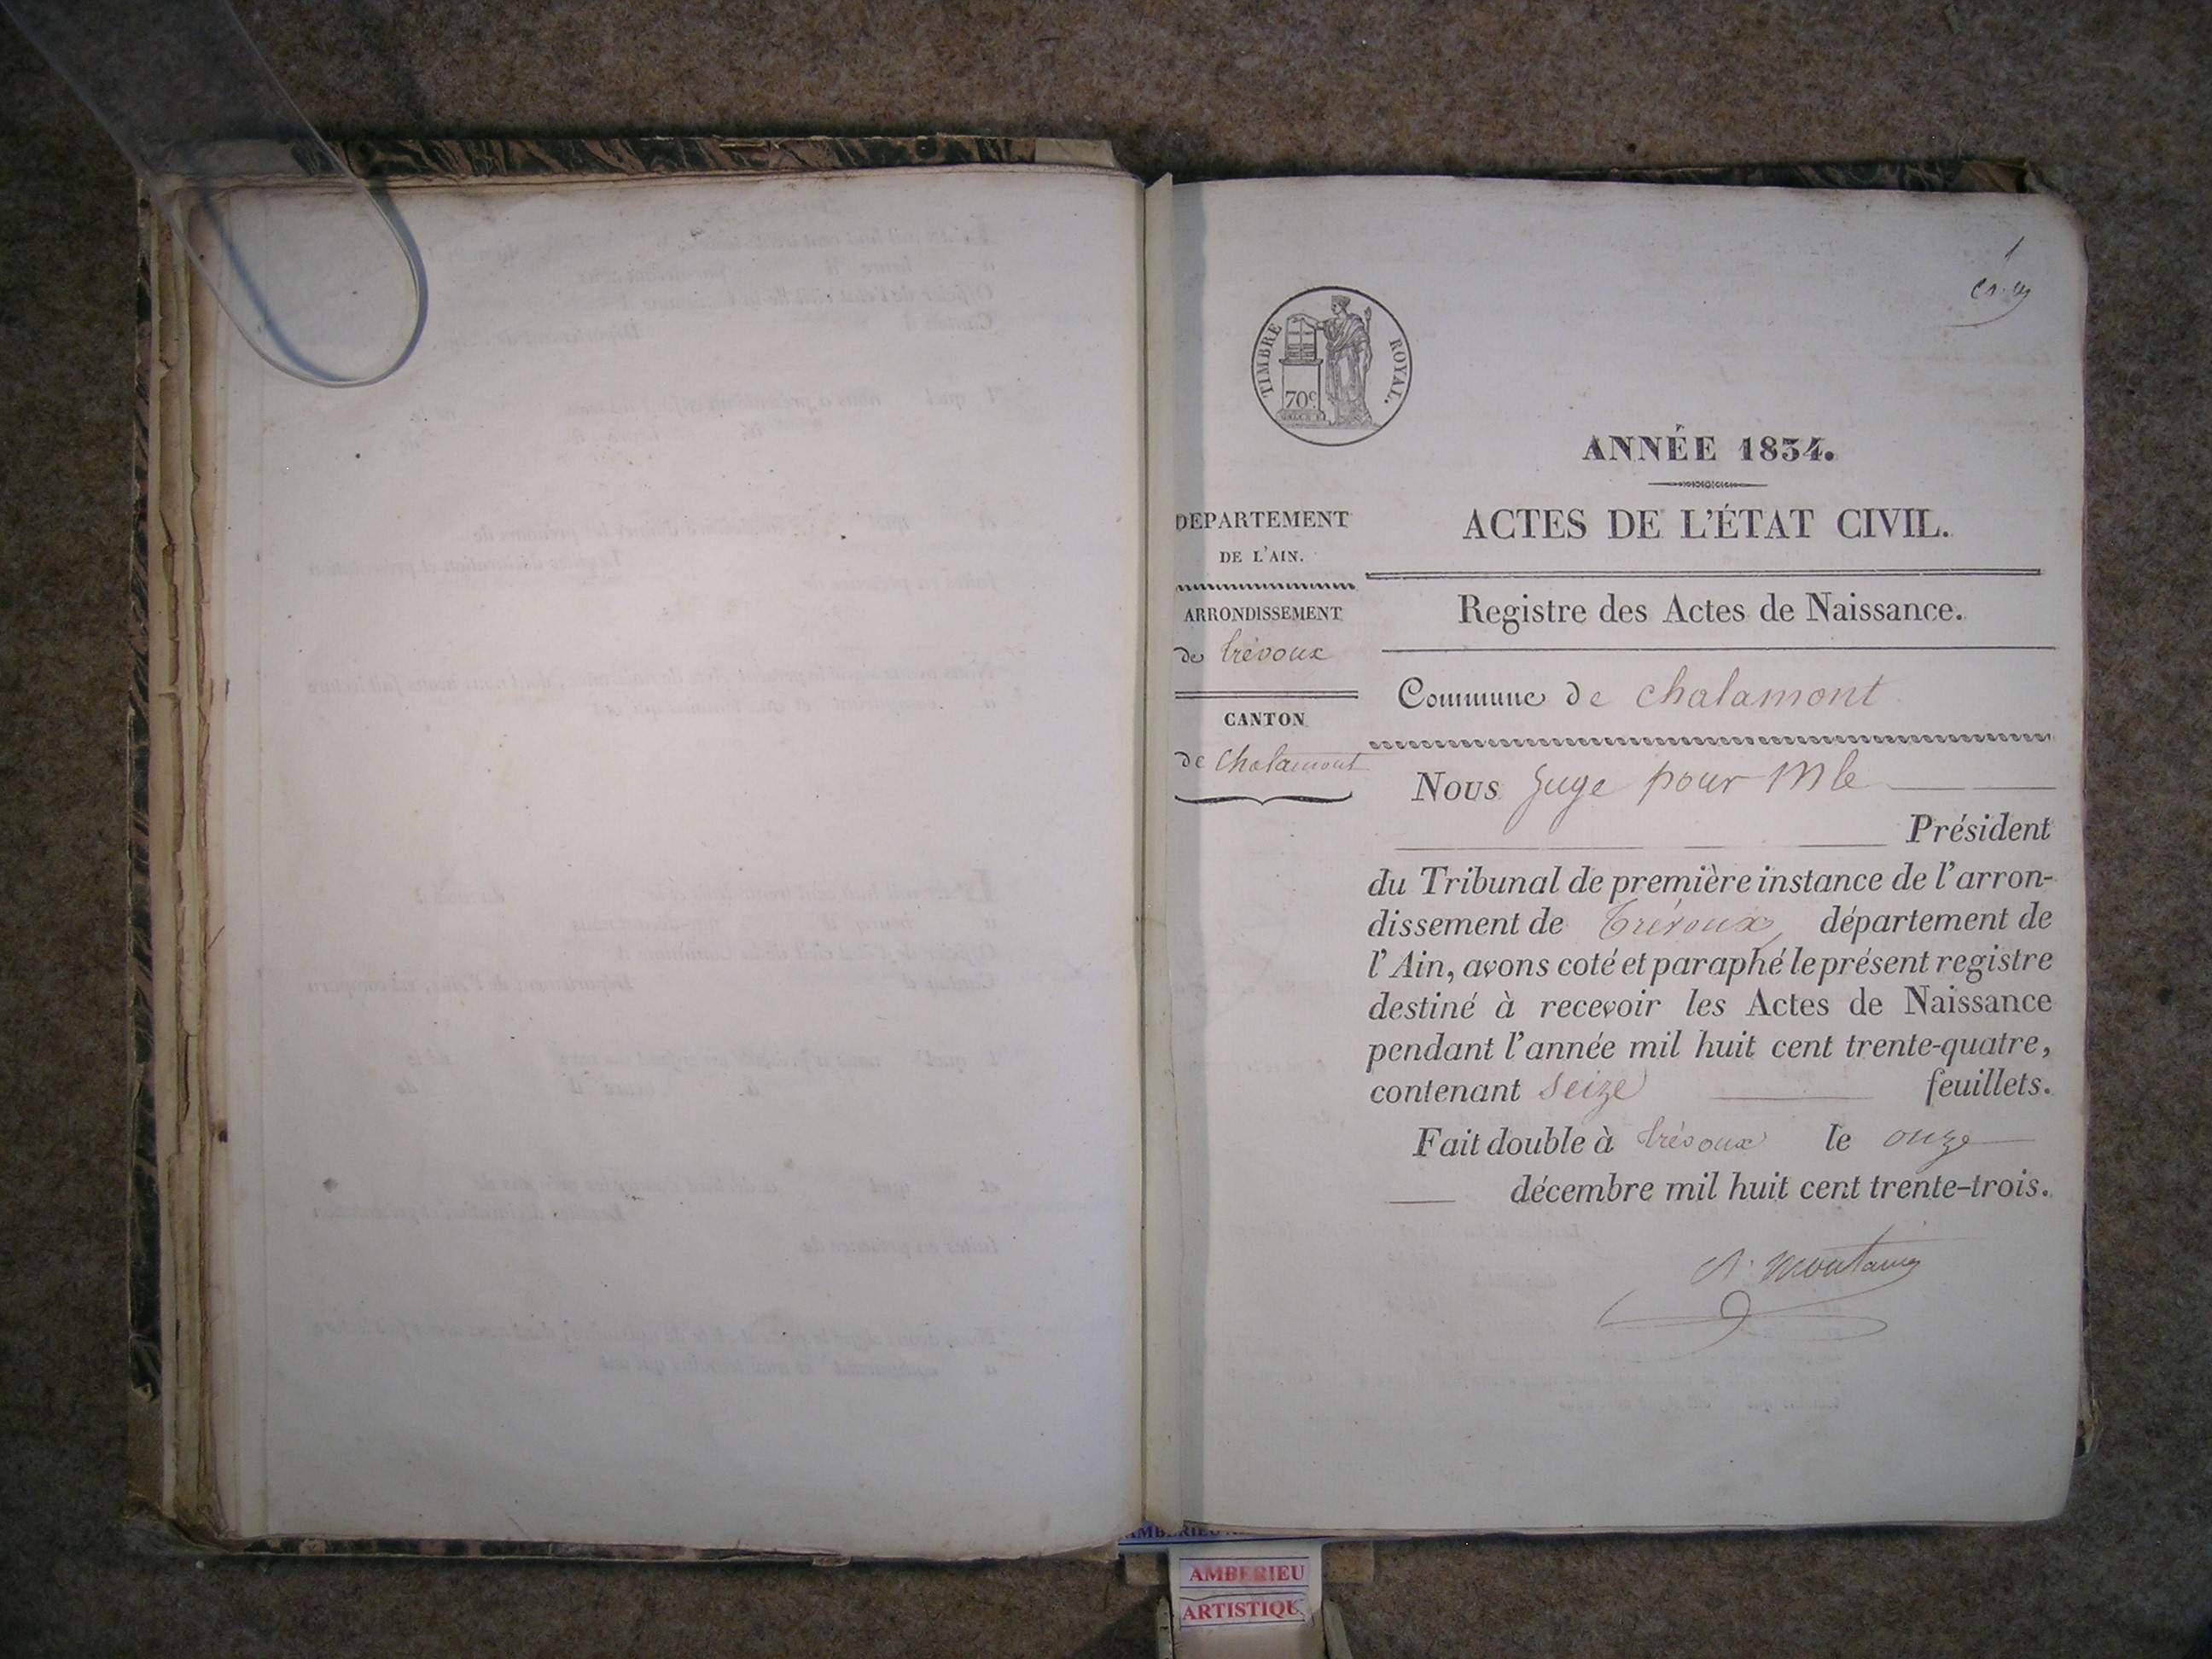 1
TIMBRE ROYAL.
70c
ANNÉE 1834.
ACTES DE L'ÉTAT CIVIL.
Registre des Actes de Naissance.
DEPARTEMENT
DE L'AIN.
ARRONDISSEMENT
de trévoux
CANTON
de Chalamont
Commune de chalamont
Nous Juge pour Mr le
Président
du Tribunal de première instance de l'arron-
dissement de Trévoux département de
l'Ain, avons coté et paraphé le présent registre
destiné à recevoir les Actes de Naissance
pendant l'année mil huit cent trente-quatre,
contenant seize feuillets.
Fait double à trévoux le onze
décembre mil huit cent trente-trois.
AMBERIEU
ARTISTIQU